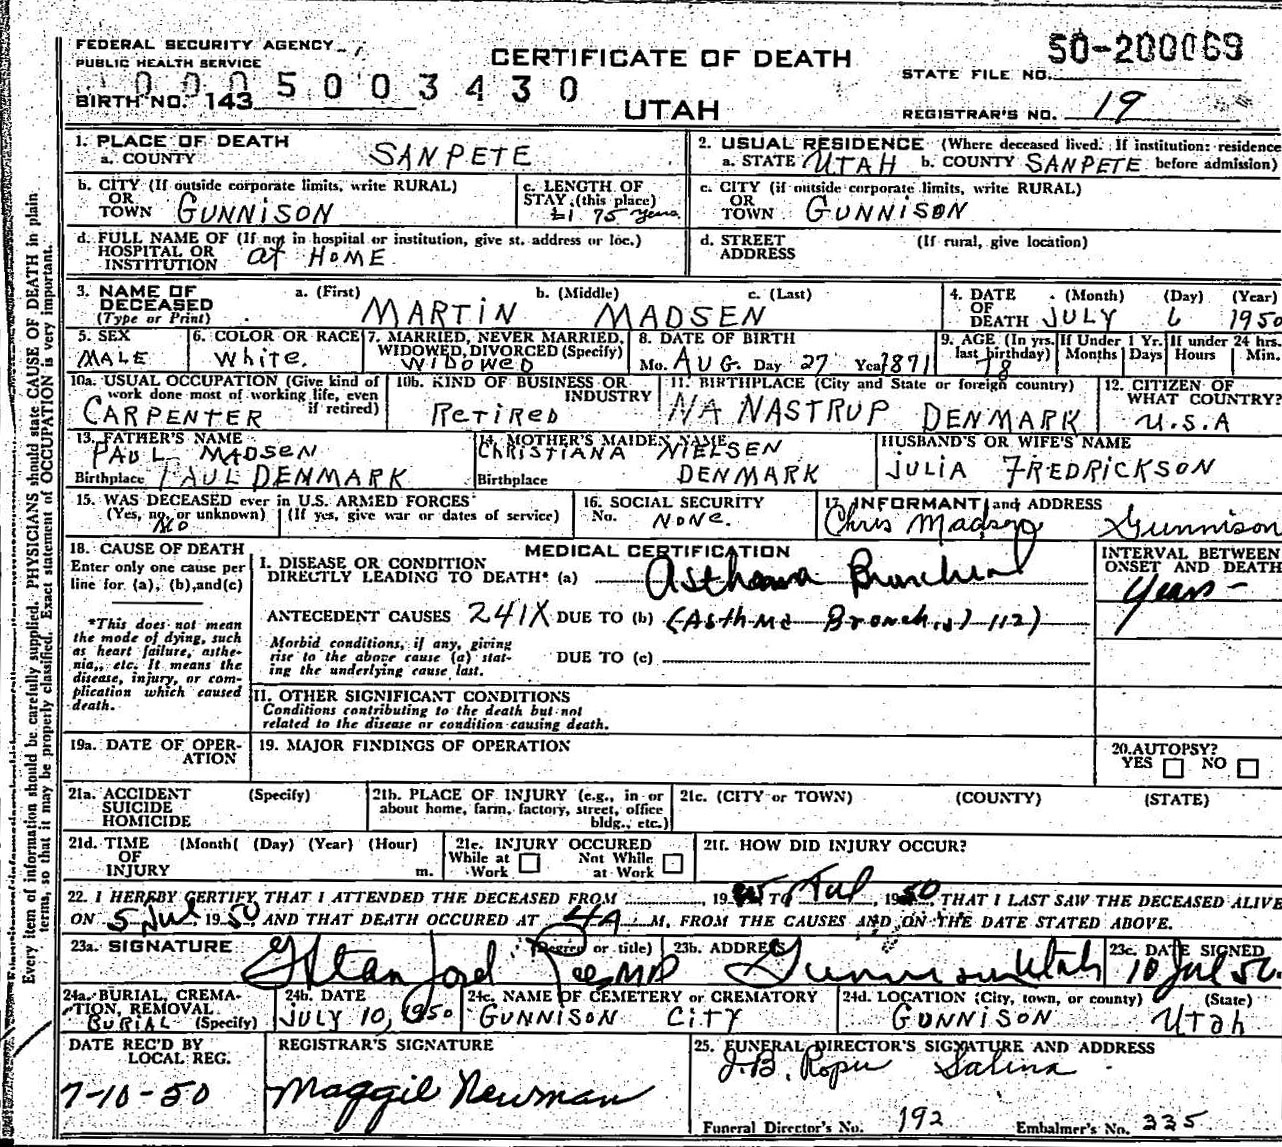 FEDERAL SECURITY AGENCY
PUBLIC HEALTH SERVICE
CERTIFICATE OF DEATH
UTAH
50-200069
STATE FILE NO.
BIRTH NO. 143
0005003430
REGISTRAR'S NO. 19
1. PLACE OF DEATH
a. COUNTY SANPETE
2. USUAL RESIDENCE (Where deceased lived. If institution: residence
a. STATE UTAH b. COUNTY SANPETE before admission)
b. CITY (If outside corporate limits, write RURAL)
OR
TOWN GUNNISON
c. LENGTH OF
STAY (this place)
75 years
c. CITY (if outside corporate limits, write RURAL)
OR
TOWN GUNNISON
d. FULL NAME OF (If not in hospital or institution, give st. address or loc.)
HOSPITAL OR
INSTITUTION at HOME
d. STREET (If rural, give location)
ADDRESS
3. NAME OF a. (First) b. (Middle) c. (Last)
DECEASED
(Type or Print) MARTIN MADSEN
4. DATE (Month) (Day) (Year)
OF
DEATH JULY 6 1950
5. SEX
MALE
6. COLOR OR RACE
White.
7. MARRIED, NEVER MARRIED,
WIDOWED, DIVORCED (Specify)
WIDOWED
8. DATE OF BIRTH
Mo. AUG. Day 27 Year 1871
9. AGE (In yrs. last birthday)
78
If Under 1 Yr.
Months Days
If under 24 hrs.
Hours Min.
10a. USUAL OCCUPATION (Give kind of
work done most of working life, even
if retired)
CARPENTER
10b. KIND OF BUSINESS OR
INDUSTRY
RETIRED
11. BIRTHPLACE (City and State or foreign country)
NA NASTRUP DENMARK
12. CITIZEN OF
WHAT COUNTRY?
U.S.A
13. FATHER'S NAME
PAUL MADSEN
Birthplace PAUL DENMARK
14. MOTHER'S MAIDEN NAME
CHRISTIANA NIELSEN
Birthplace DENMARK
HUSBAND'S OR WIFE'S NAME
JULIA FREDRICKSON
15. WAS DECEASED ever in U.S. ARMED FORCES
(Yes, no, or unknown) (If yes, give war or dates of service)
NO
16. SOCIAL SECURITY
No. NONE.
17. INFORMANT and ADDRESS
Chris Madsen Gunnison
18. CAUSE OF DEATH
Enter only one cause per
line for (a), (b), and (c)
*This does not mean
the mode of dying, such
as heart failure, asthe-
nia, etc. It means the
disease, injury, or com-
plication which caused
death.
MEDICAL CERTIFICATION
I. DISEASE OR CONDITION
DIRECTLY LEADING TO DEATH* (a) Asthma Bronchial
ANTECEDENT CAUSES 241X DUE TO (b) (Asthma Bronchial 112)
Morbid conditions, if any, giving
rise to the above cause (a) stat-
ing the underlying cause last.
DUE TO (c)
INTERVAL BETWEEN
ONSET AND DEATH
years
II. OTHER SIGNIFICANT CONDITIONS
Conditions contributing to the death but not
related to the disease or condition causing death.
19a. DATE OF OPER-
ATION
19. MAJOR FINDINGS OF OPERATION
20. AUTOPSY?
YES NO
21a. ACCIDENT (Specify)
SUICIDE
HOMICIDE
21b. PLACE OF INJURY (e.g., in or
about home, farm, factory, street, office
bldg., etc.)
21c. (CITY or TOWN) (COUNTY) (STATE)
21d. TIME (Month( (Day) (Year) (Hour)
OF
INJURY m.
21e. INJURY OCCURED
While at Work Not While at Work
21f. HOW DID INJURY OCCUR?
22. I HEREBY CERTIFY THAT I ATTENDED THE DECEASED FROM , 19 TO Jul , 1950 THAT I LAST SAW THE DECEASED ALIVE
ON 5 Jul 1950, AND THAT DEATH OCCURED AT 4A M, FROM THE CAUSES AND ON THE DATE STATED ABOVE.
23a. SIGNATURE (Degree or title)
Stanford Rees MD
23b. ADDRESS
Gunnison Utah
23c. DATE SIGNED
10 Jul 50
24a. BURIAL, CREMA-
TION, REMOVAL
BURIAL (Specify)
24b. DATE
JULY 10, 1950
24c. NAME OF CEMETERY OR CREMATORY
GUNNISON CITY
24d. LOCATION (City, town, or county) (State)
GUNNISON Utah
DATE REC'D BY
LOCAL REG.
7-10-50
REGISTRAR'S SIGNATURE
Maggie Newman
25. FUNERAL DIRECTOR'S SIGNATURE AND ADDRESS
J.B. Roper Salina
Funeral Director's No. 192 Embalmer's No. 335
Every item of information should be carefully supplied. PHYSICIANS should state CAUSE OF DEATH in plain
terms, so that it may be properly classified. Exact statement of OCCUPATION is very important.